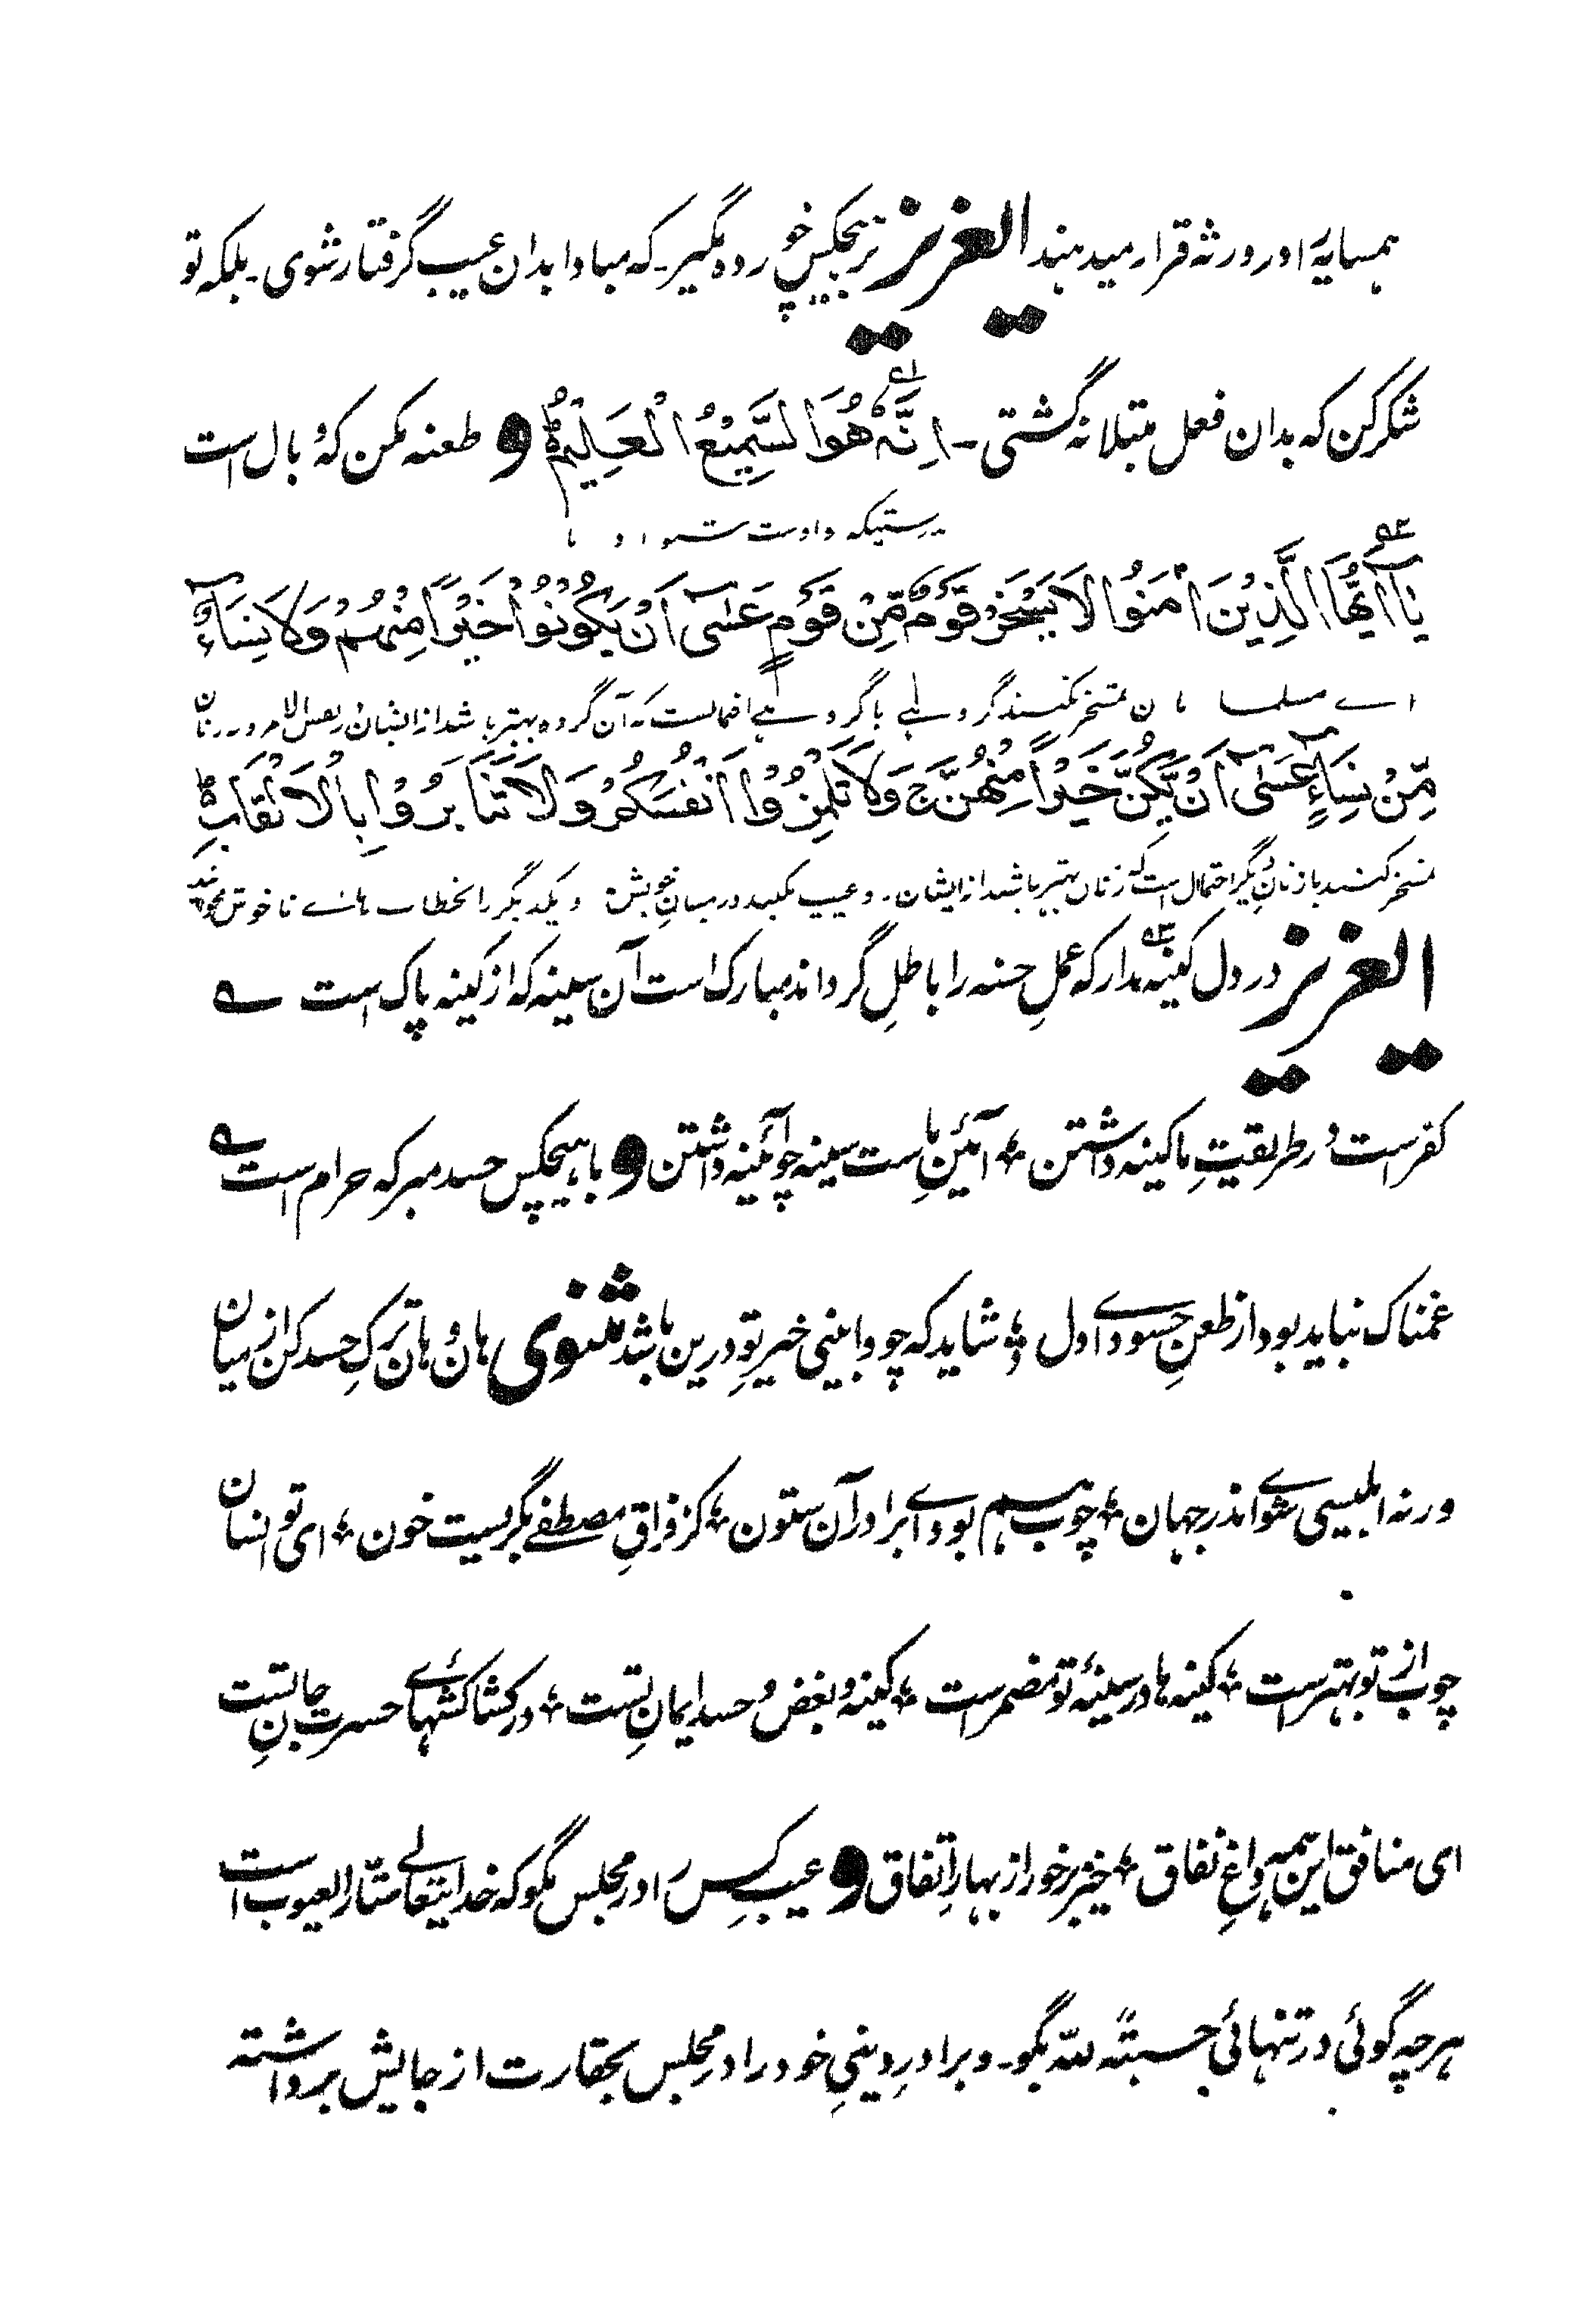 همسایۂ او در ورثه قرار میدهند ایعزیز بر هیچکس خورده مگیر۔ که مبادا بدان عیب گرفتار شوی۔ بلکه تو
شکر کن که بدان فعل مبتلا نه گشتی۔ اِنَّهٗ هُوَ السَّمِیْعُ الْعَلِیْمُ و طعنه مکن که وبال است
بدرستیکه اوست شنوا و
یٰۤاَیُّهَا الَّذِیْنَ اٰمَنُوا لَا یَسْخَرْ قَوْمٌ مِّنْ قَوْمٍ عَسٰۤی اَنْ یَّکُوْنُوْا خَیْرًا مِّنْهُمْ وَلَا نِسَآءٌ
اے مسلمانان تمسخر نکنند گروہے با گروہے احتمالست که آن گروه بهتر باشد از ایشان
مِّنْ نِسَآءٍ عَسٰۤی اَنْ یَّکُنَّ خَیْرًا مِّنْهُنَّ ج وَلَا تَلْمِزُوْۤا اَنْفُسَکُمْ وَلَا تَنَابَزُوْا بِالْاَلْقَابِ ط
تمسخر کنند با زنانِ دیگر احتمال است که زنان بهتر باشند از ایشان۔ و عیب مکنید در میانِ خویش و یکدیگر را بخطاب هاے ناخوش مخوانید
ایعزیز در دل کینه مدار که عملِ حسنه را باطل گرداند مبارک است آن سینه که از کینه پاک است ے
کفر است در طریقتِ ما کینه داشتن ؛ آئینِ ماست سینه چو آئینه داشتن و با هیچکس حسد مبر که حرام است ے
غمناک نباید بود از طعنِ حسود اے دل ؛ شاید که چو وا بینی خیرِ تو درین باشد مثنوی هان و هان ترکِ حسد کن از میان
ورنه ابلیسی شوے اندر جهان ؛ چوب هم بودے برادر آن ستون ؛ کز فراقِ مصطفے بگریست خون ؛ ای تو انسان
چوب از تو بهتر است ؛ کینه ها در سینۂ تو مضمر است ؛ کینه و بغض و حسد ایمانِ تست ؛ در کشاکشهائے حسرت جانِ تست
ای منافق این همه داغِ نفاق ؛ خیز برخور از بهارِ اتفاق و عیبِ کس را در مجلس مگو که خدایتعالے ستّار العیوب است
هرچه گوئی در تنهائی حسبتهً للّٰه بگو۔ و برادرِ دینیِ خود را در مجلس بحقارت از جایش برداشته